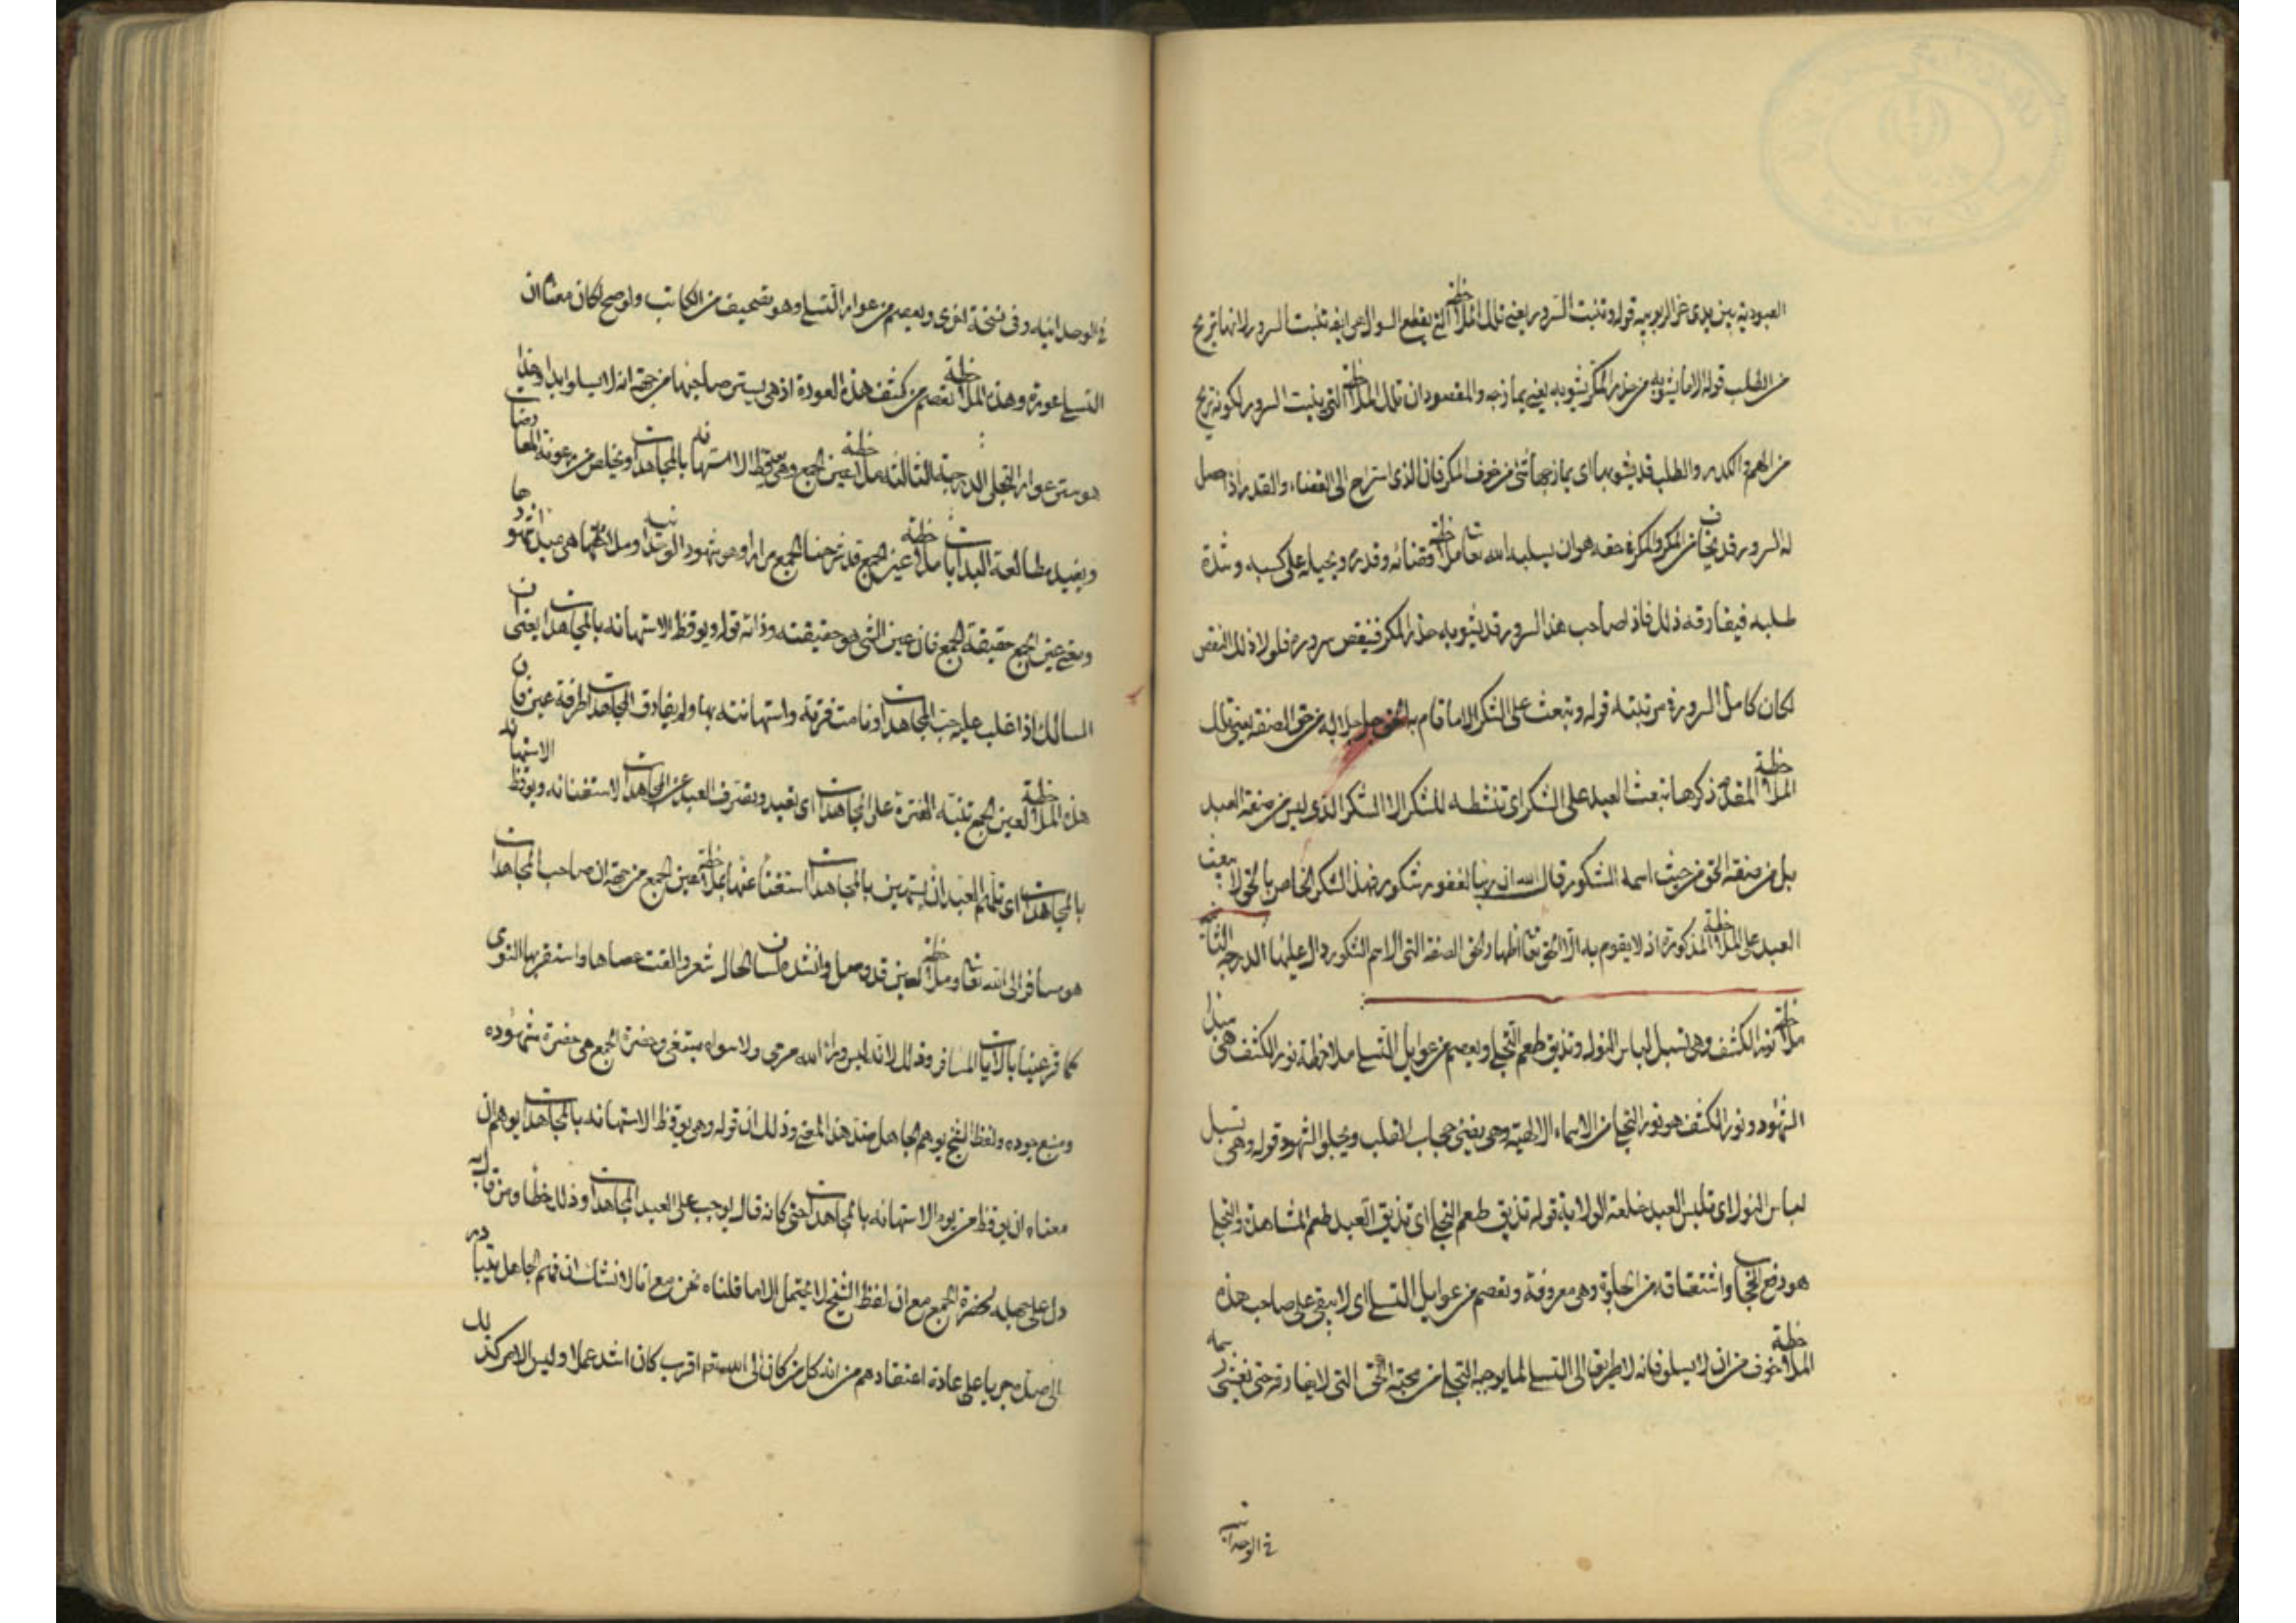 العبودية بين يدى عز الربوبية قوله وتنبت السرور يعنى تلك الملاحظة التى يقطع السوال هى ايضه تنبت السرور لانها تريح
من الطلب قوله الا ما يشوبه من حذر المكر يشوبه يعنى يمازجه والمقصود ان تلك الملاحظة التى ينبت السرور لكونه تريح
من الهم و الكدر والطلب قد يشوبها اى يمازجها شئ من خوف المكر فان الذى استراح الى القضاء والقدر اذا حصل
له السرور قد يخاف من المكر والمكر فى حقه هو ان يسلبه الله تعا ملاحظة قضائه وقدره ويحيله على كسبه وشدة
طلبه فيفارقه ذلك فاذا صاحب هذا السرور قد يشوبه حذر المكر فينقص سروره فلولا ذلك النقص
لكان كامل السرور فى مرتبته قوله وتبعث على الشكر الا ما قام به الحق جل جلاله من حق الصفة يعنى تلك
الملاحظة المقدم ذكرها تبعث العبد على الشكر اى تنشطه للشكر الا الشكر الذى ليس من صفة العبد
بل من صفة الحق من حيث اسمه الشكور قال الله ان ربنا لغفور شكور فهذا الشكر الخاص بالحق لا يبعث
العبد على الملاحظة المذكورة اذ لا يقوم به الا الحق تعا اظهارا لحق الصفة التى الاسم الشكور دال عليها الدرجة الثانية
ملاحظة نور الكشف وهى تسبل لباس التولى وتذيق طعم التجلى ويعصم من عوايل التسلى ملاحظة نور الكشف هى مبدا
الشهود ونور الكشف هو نور التجلى من الاسماء الالهية وهى يفنى حجاب القلب ويجلو الشهود قوله وهى تسبل
لباس التولى اى تلبس العبد خلعة الولاية قوله تذيق طعم التجلى اى تذيق العبد طعم المشاهدة والتجلى
هو رفع الحجاب واشتقاقه من الجلوة وهى معروفة وتعصم من عوايل التسلى اى لا يبقى على صاحب هذه
الملاحظة خوف من ان لا يسلو فانه لا طريق الى التسلى لما يوجبه التجلى من محبة الحق التى لا يفارقه حتى تغنى رسمه
فى الوحدانية
فى الوحدانيه وفى نسخة اخرى ويعصم من عوار التسلى وهو تصحيف من الكاتب ولو صح لكان معناه ان
التسلى عورة وهذه الملاحظة تعصم من كشف هذه العورة اذ هى يستر صاحبها من جهة انه لا يسلو ابدا وهذا
هو ستر عوار التجلى الدرجة الثالثة ملاحظة عين الجمع وهى توقظ الاستهانة بالمجاهدات وتخلص من رعونة المعارضات
ويفيد مطالعة البدايات ملاحظة عين الجمع قد شرحنا الجمع مرارا وهو شهود الوحدانية وملاحظتها هى مبدا شهودها
ومعنى عين الجمع حقيقة الجمع فان عين الشئ هو حقيقته وذاته قوله ويوقظ الاستهانة بالمجاهدات يعنى ان
السالك اذا غلب عليه حب المجاهدات ونامت فترته واستهانته بها ولم يفارق المجاهدات طرفة عين فان
هذه الملاحظة لعين الجمع تنبه الفترة على المجاهدات اى يفيد ويصرف العبد عن المجاهدات لاستغنائه ويوقظ الاستهانه
بالمجاهدات اى تلهم العبد ان يستهين بالمجاهدات استغناء عنها بملاحظة عين الجمع من جهة ان صاحب المجاهدات
هو مسافر الى الله تعا وملاحظة العين قد وصل وانشده لسان الحال شعر والقت عصاها واستقر بها النوى
كما قر عينا بالاياب المسافر وذلك لانه ليس وراء الله مرمى ولا سواه مبتغى وحضرة الجمع هى حضرة شهوده
ومنبع جوده ولفظ الشيخ يوهم الجاهل ضد هذا المعنى وذلك ان قوله وهى يوقظ الاستهانه بالمجاهدات يوهم ان
معناه ان يوقظ من يوم الاستهانه بالمجاهدات حتى كانه قال يوجب على العبد المجاهدات وذلك خطا ومن قال به
دل على جهله بحضرة الجمع مع ان لفظ الشيخ لا يحتمل الا ما قلناه نحن مع انا لا نشك ان فهم الجاهل يتبادر
الى ضده جريا على عادة اعتقادهم من ان كل من كان الى الله تعا اقرب كان اشد عملا وليس الامر كذلك